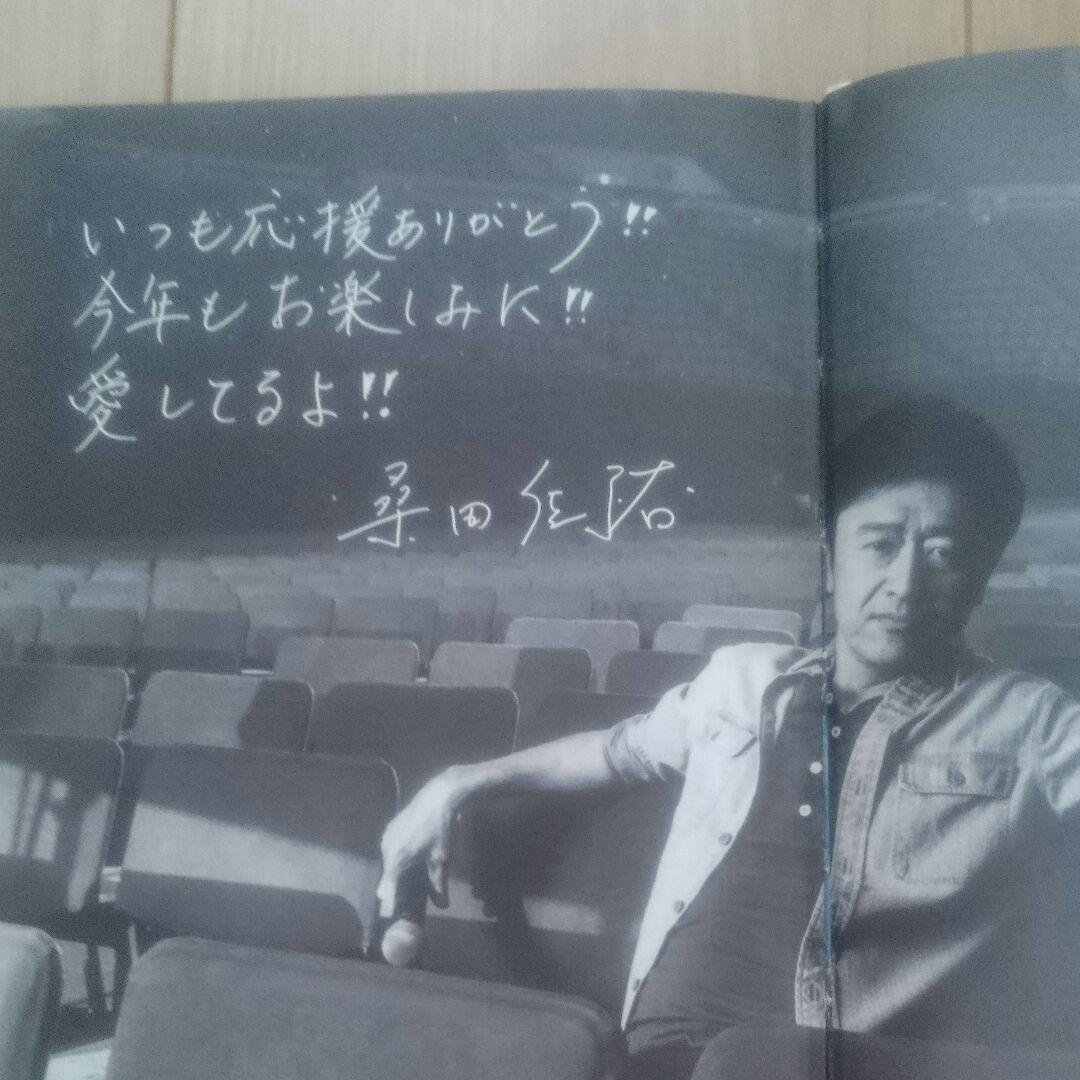 いつも応援ありがとう!!
今年もお楽しみに!!
愛してるよ!!
桑田佳祐